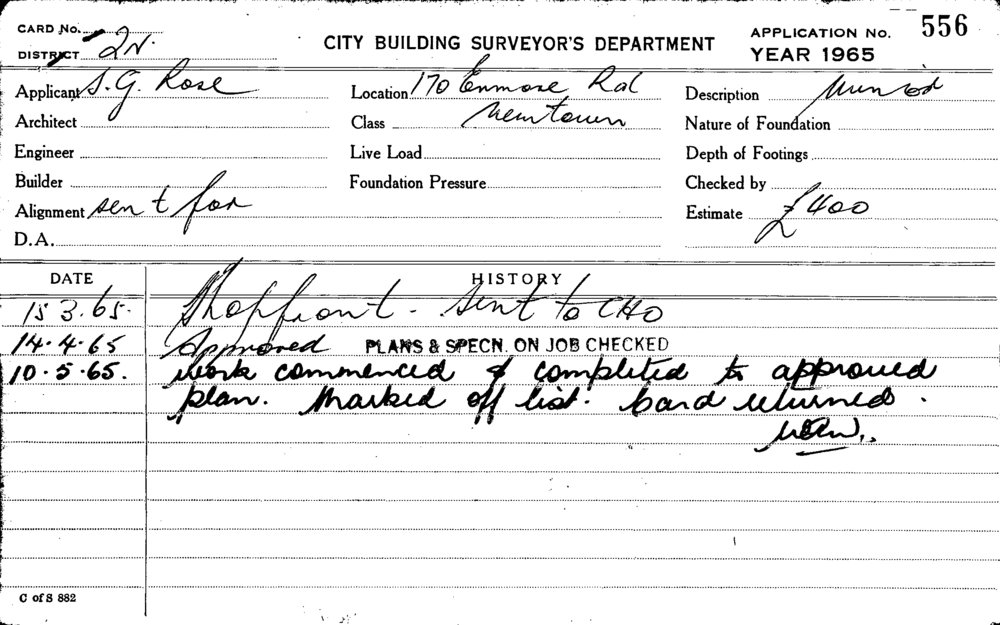 CARD No.
DISTRICT 2N.
CITY BUILDING SURVEYOR'S DEPARTMENT
APPLICATION No. 556
YEAR 1965
Applicant S. G. Rose
Location 170 Enmore Rd
Description
Architect
Class Newtown
Nature of Foundation
Engineer
Live Load
Depth of Footings
Builder
Foundation Pressure
Checked by
Alignment sent for
Estimate £400
D.A.
DATE
HISTORY
15 3.65. Shopfront - sent to CHO
14.4.65 Approved PLANS & SPECN. ON JOB CHECKED
10.5.65. Work commenced & completed to approved
plan. Marked off list. Card returned.
C of S 882